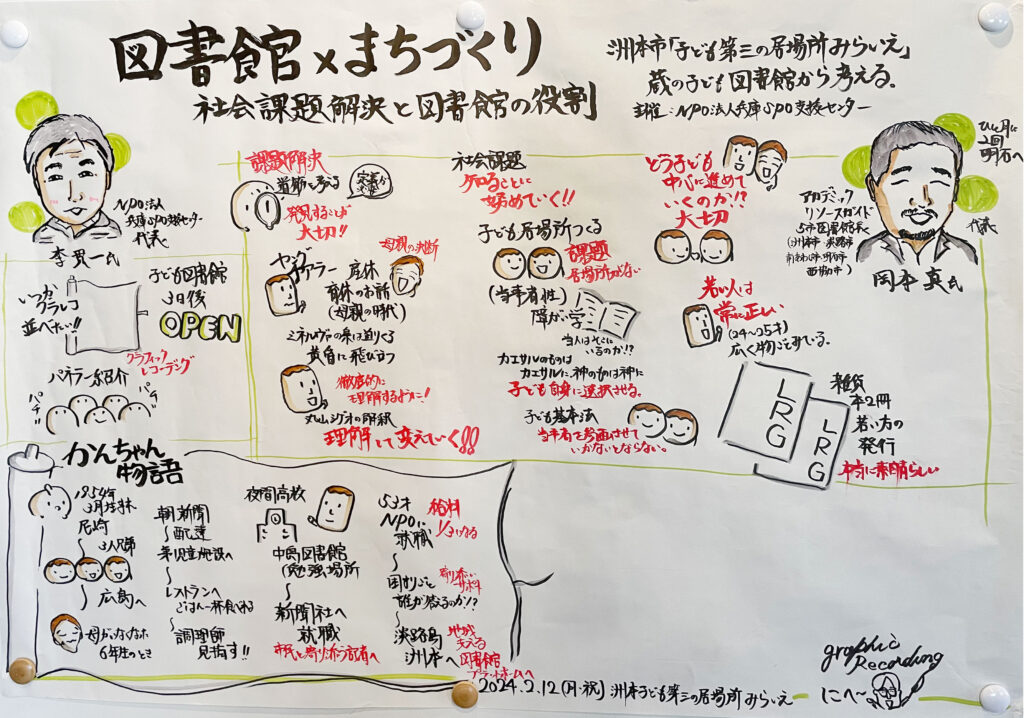 図書館×まちづくり
社会課題解決と図書館の役割
洲本市「子ども第三の居場所みらいえ」
蔵の子ども図書館から考える。
主催:NPO法人兵庫SPO支援センター
NPO法人
兵庫SPO支援センター
代表
ひと月に
2回
明石へ
アカデミック
リソースガイド
5市図書館長
(洲本市・淡路市
西脇市)
代表
岡本真氏
いつか
グラレコ
並べたい!!
子ども図書館
3日後
OPEN
グラフィック
レコーディング
パネラー紹介
パチ
パチ
課題解決
道筋を考える
定義が
大事
発見することが
大切!!
ヤング
ケアラー
産休
育休のお話
(母親の時代)
母親の決断
ミネルヴァの梟は迫りくる
黄昏に飛び立つ
徹底的に
理解するまでに!
丸山シゲオの解釈
理解して変えていく!!
社会課題
知ることに
始めていく!!
子ども居場所つくる
課題
居場所がない
(当事者性)
障がい学
当人はそこに
いるのか!?
カエサルのものは
カエサルに、神のものは神に
子ども自身に選択させる。
子ども基本法
当事者を参画させて
いかないとならない。
どう子ども
中心に進めて
いくのか!?
大切
若い人は
常に正しい
(24〜25才)
広く物ごとみている。
LRG
LRG
雑貨
本2冊
若い方の
発行
本当に素晴らしい
かんちゃん
物語
1954年
尼崎
3人兄弟
広島へ
母がいなくなった
6年生のとき
朝新聞
配達
レストランへ
ごはん一杯食べれる
調理師
見指す!!
夜間高校
中島図書館
(勉強場所
新聞社へ
就職
市民と寄り添う記者へ
53才
NPOに
就職
給料
1/3になる
困りごと
誰が答るのか!?
寄り添い
サポート
淡路島
洲本へ
地域
支える
図書館
プラットホームへ
2024.2.12(月・祝) 洲本子ども第三の居場所みらいえ
graphic
Recording
にへ〜